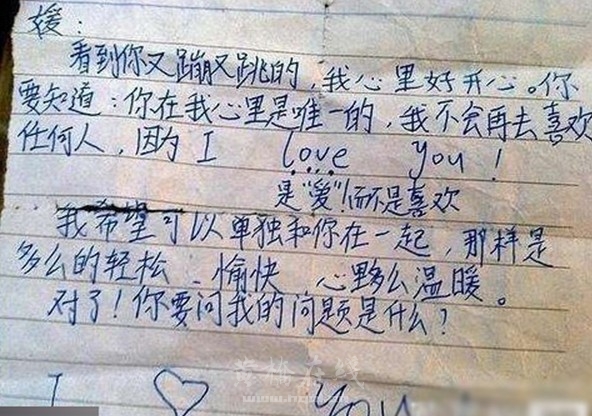 媛：
看到你又蹦又跳的，我心里好开心。你
要知道：你在我心里是唯一的，我不会再去喜欢
任何人，因为 I love you！
是“爱”！而不是喜欢
我希望可以单独和你在一起，那样是
多么的轻松、愉快、心够么温暖。
对了！你要问我的问题是什么？
I ♡ you